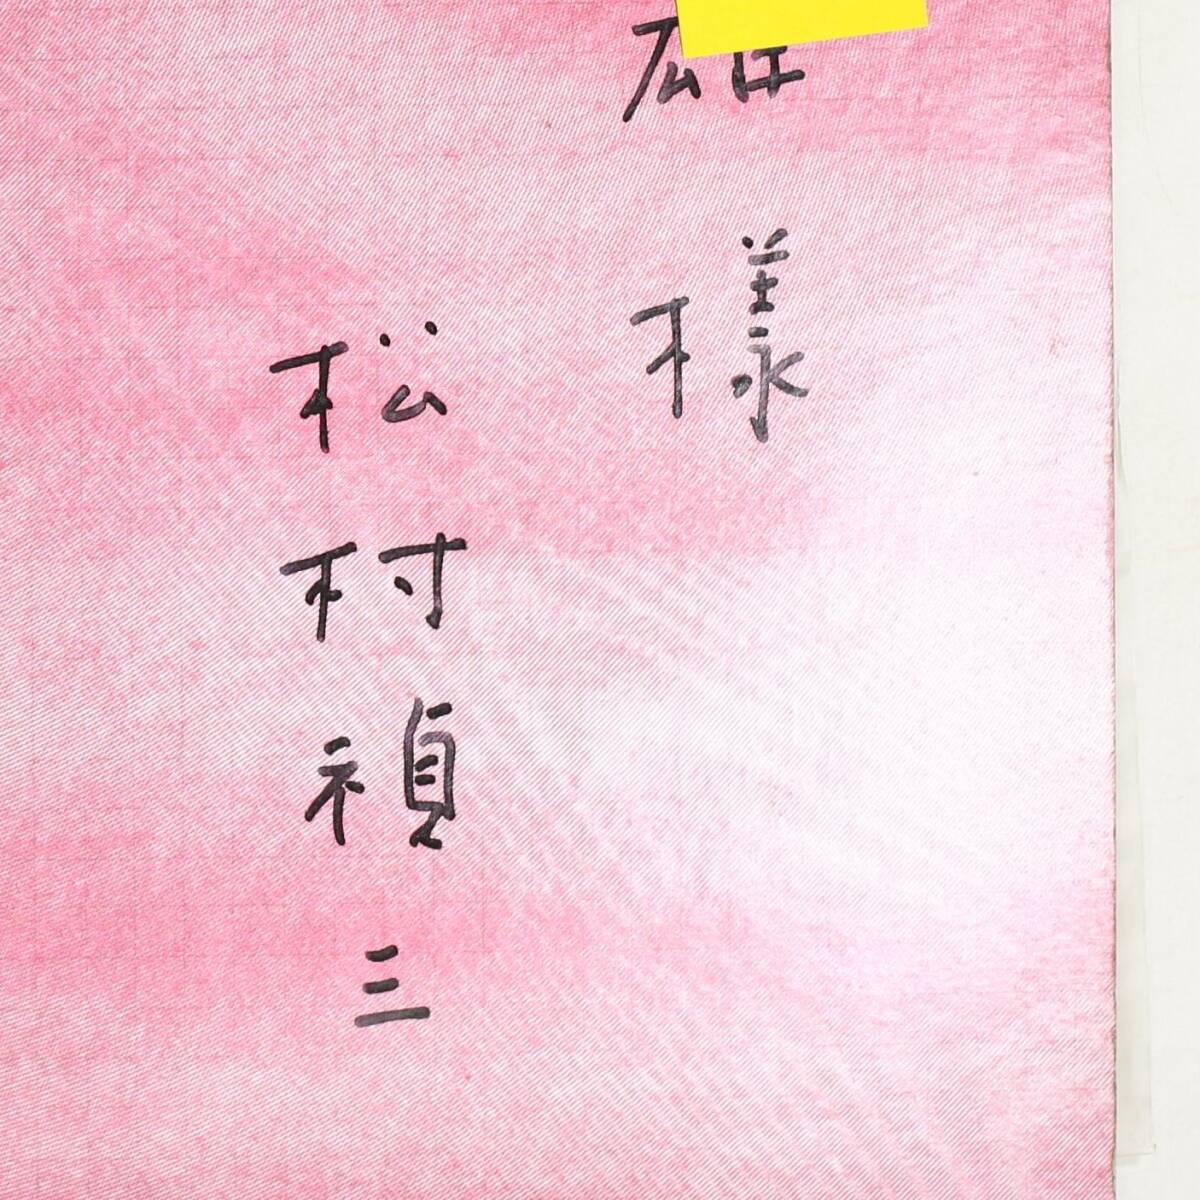 雄様
松村禎三